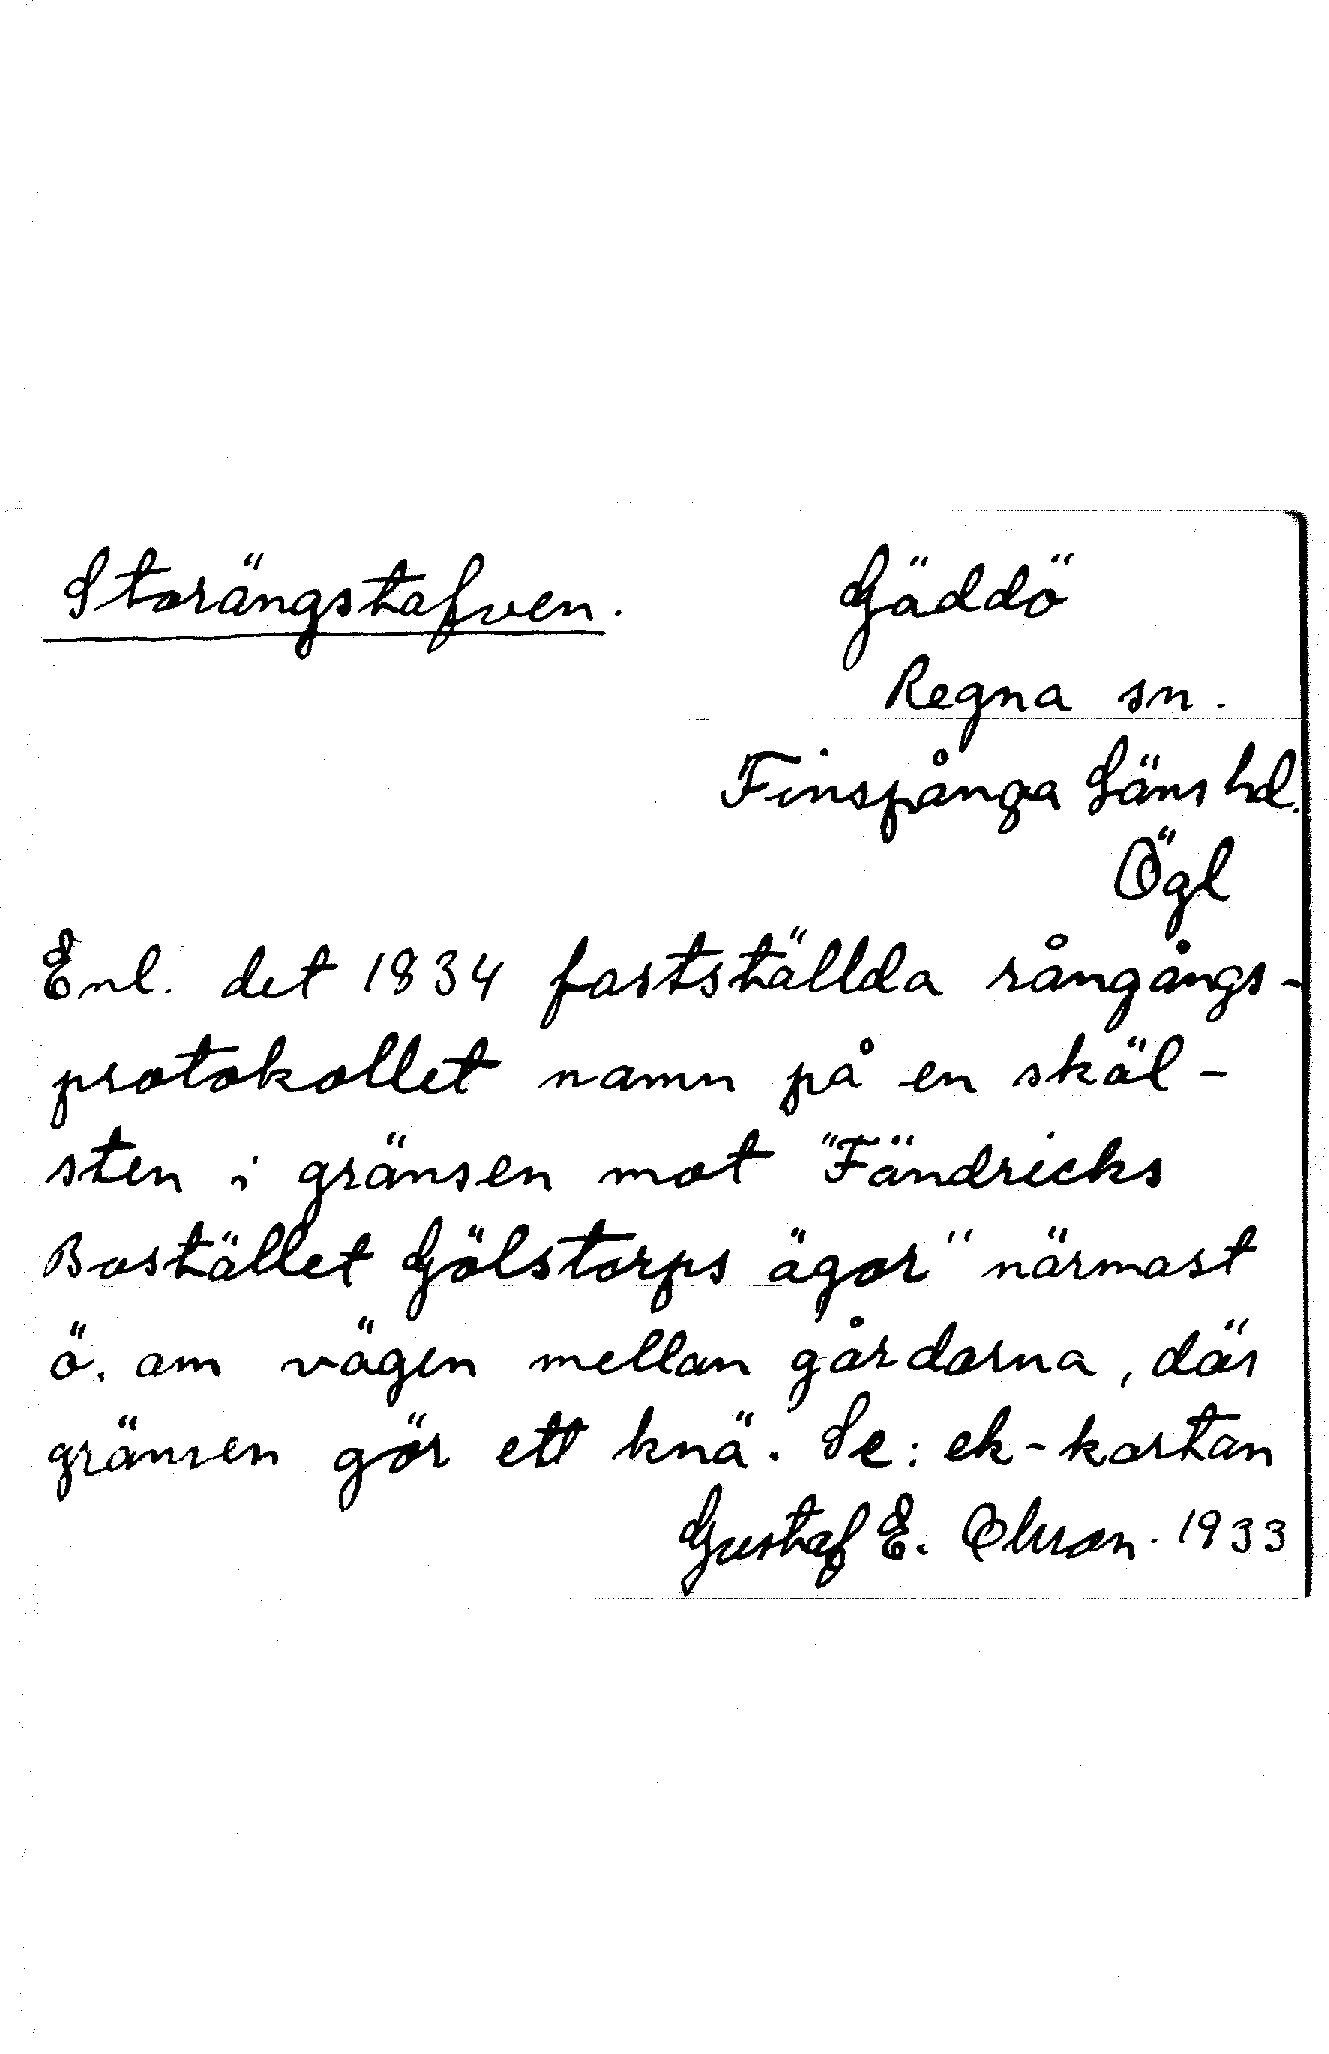 Storängstafven.
Gäddö
Regna sn.
Finspånga Läns hd.
Ögl
Enl. det 1834 fastställda rångångs-
protokollet namn på en skäl-
sten i gränsen mot "Fändricks
Bostället Gölstorps ägor" närmast
ö. om vägen mellan gårdarna, där
gränsen gör ett knä. Se: ek-kartan
Gustaf E. Olsson. 1933